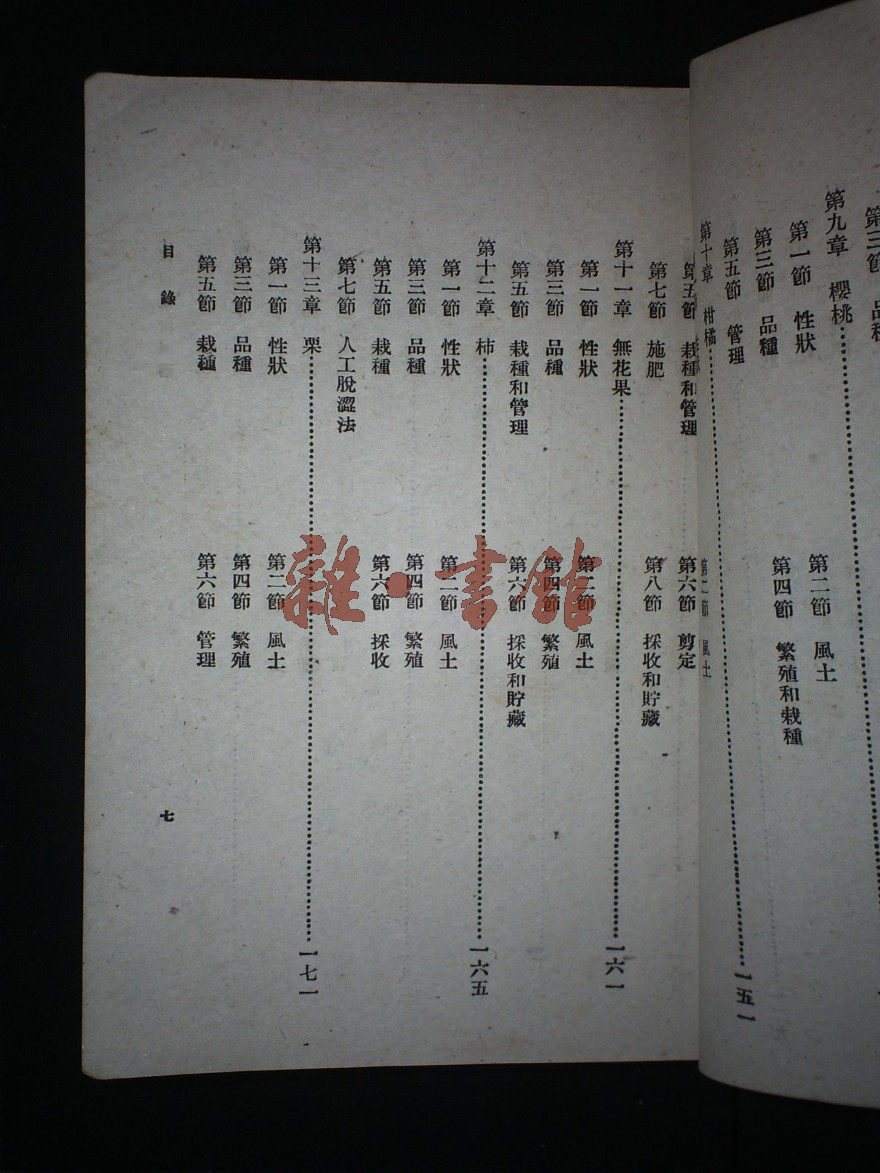 第三節 品種
第九章 櫻桃
第一節 性狀 第二節 風土
第三節 品種 第四節 繁殖和栽種
第五節 管理
第十章 柑橘……一五一
第二節 風土
第五節 栽種和管理 第六節 剪定
第七節 施肥 第八節 採收和貯藏
第十一章 無花果……一六一
第一節 性狀 第二節 風土
第三節 品種 第四節 繁殖
第五節 栽種和管理 第六節 採收和貯藏
第十二章 柿……一六五
第一節 性狀 第二節 風土
第三節 品種 第四節 繁殖
第五節 栽種 第六節 採收
第七節 人工脫澀法
第十三章 栗……一七一
第一節 性狀 第二節 風土
第三節 品種 第四節 繁殖
第五節 栽種 第六節 管理
目錄 七
雜·書館